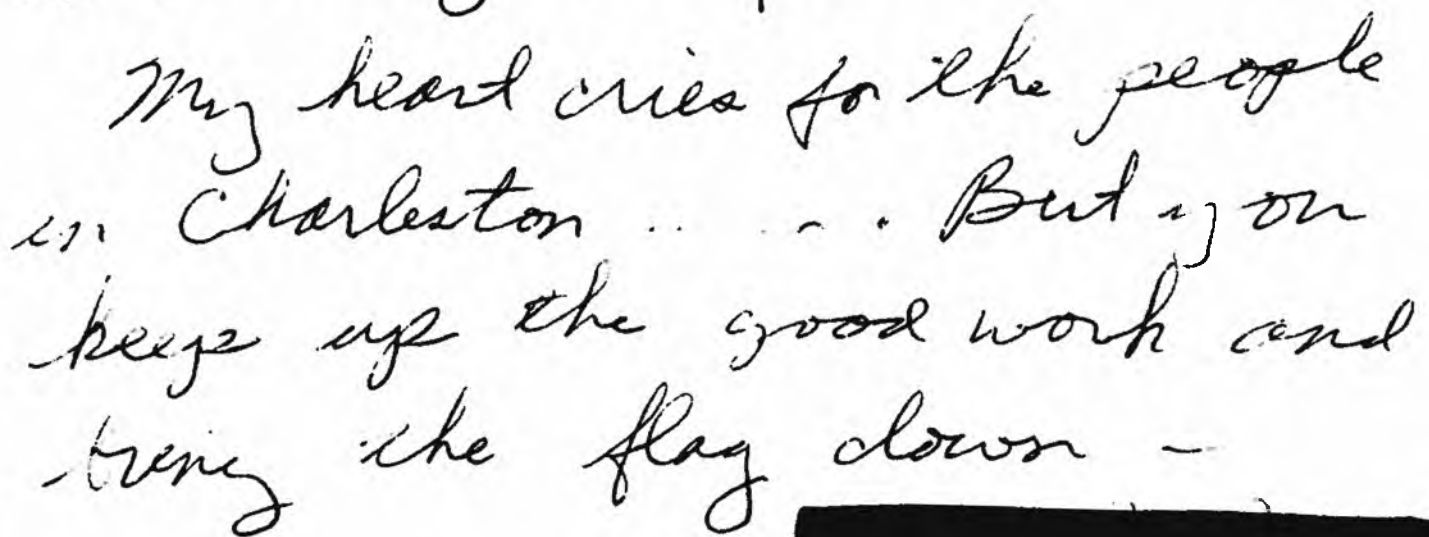 My heart cries for the people
in Charleston ..... But you
keep up the good work and
bring the flag down -